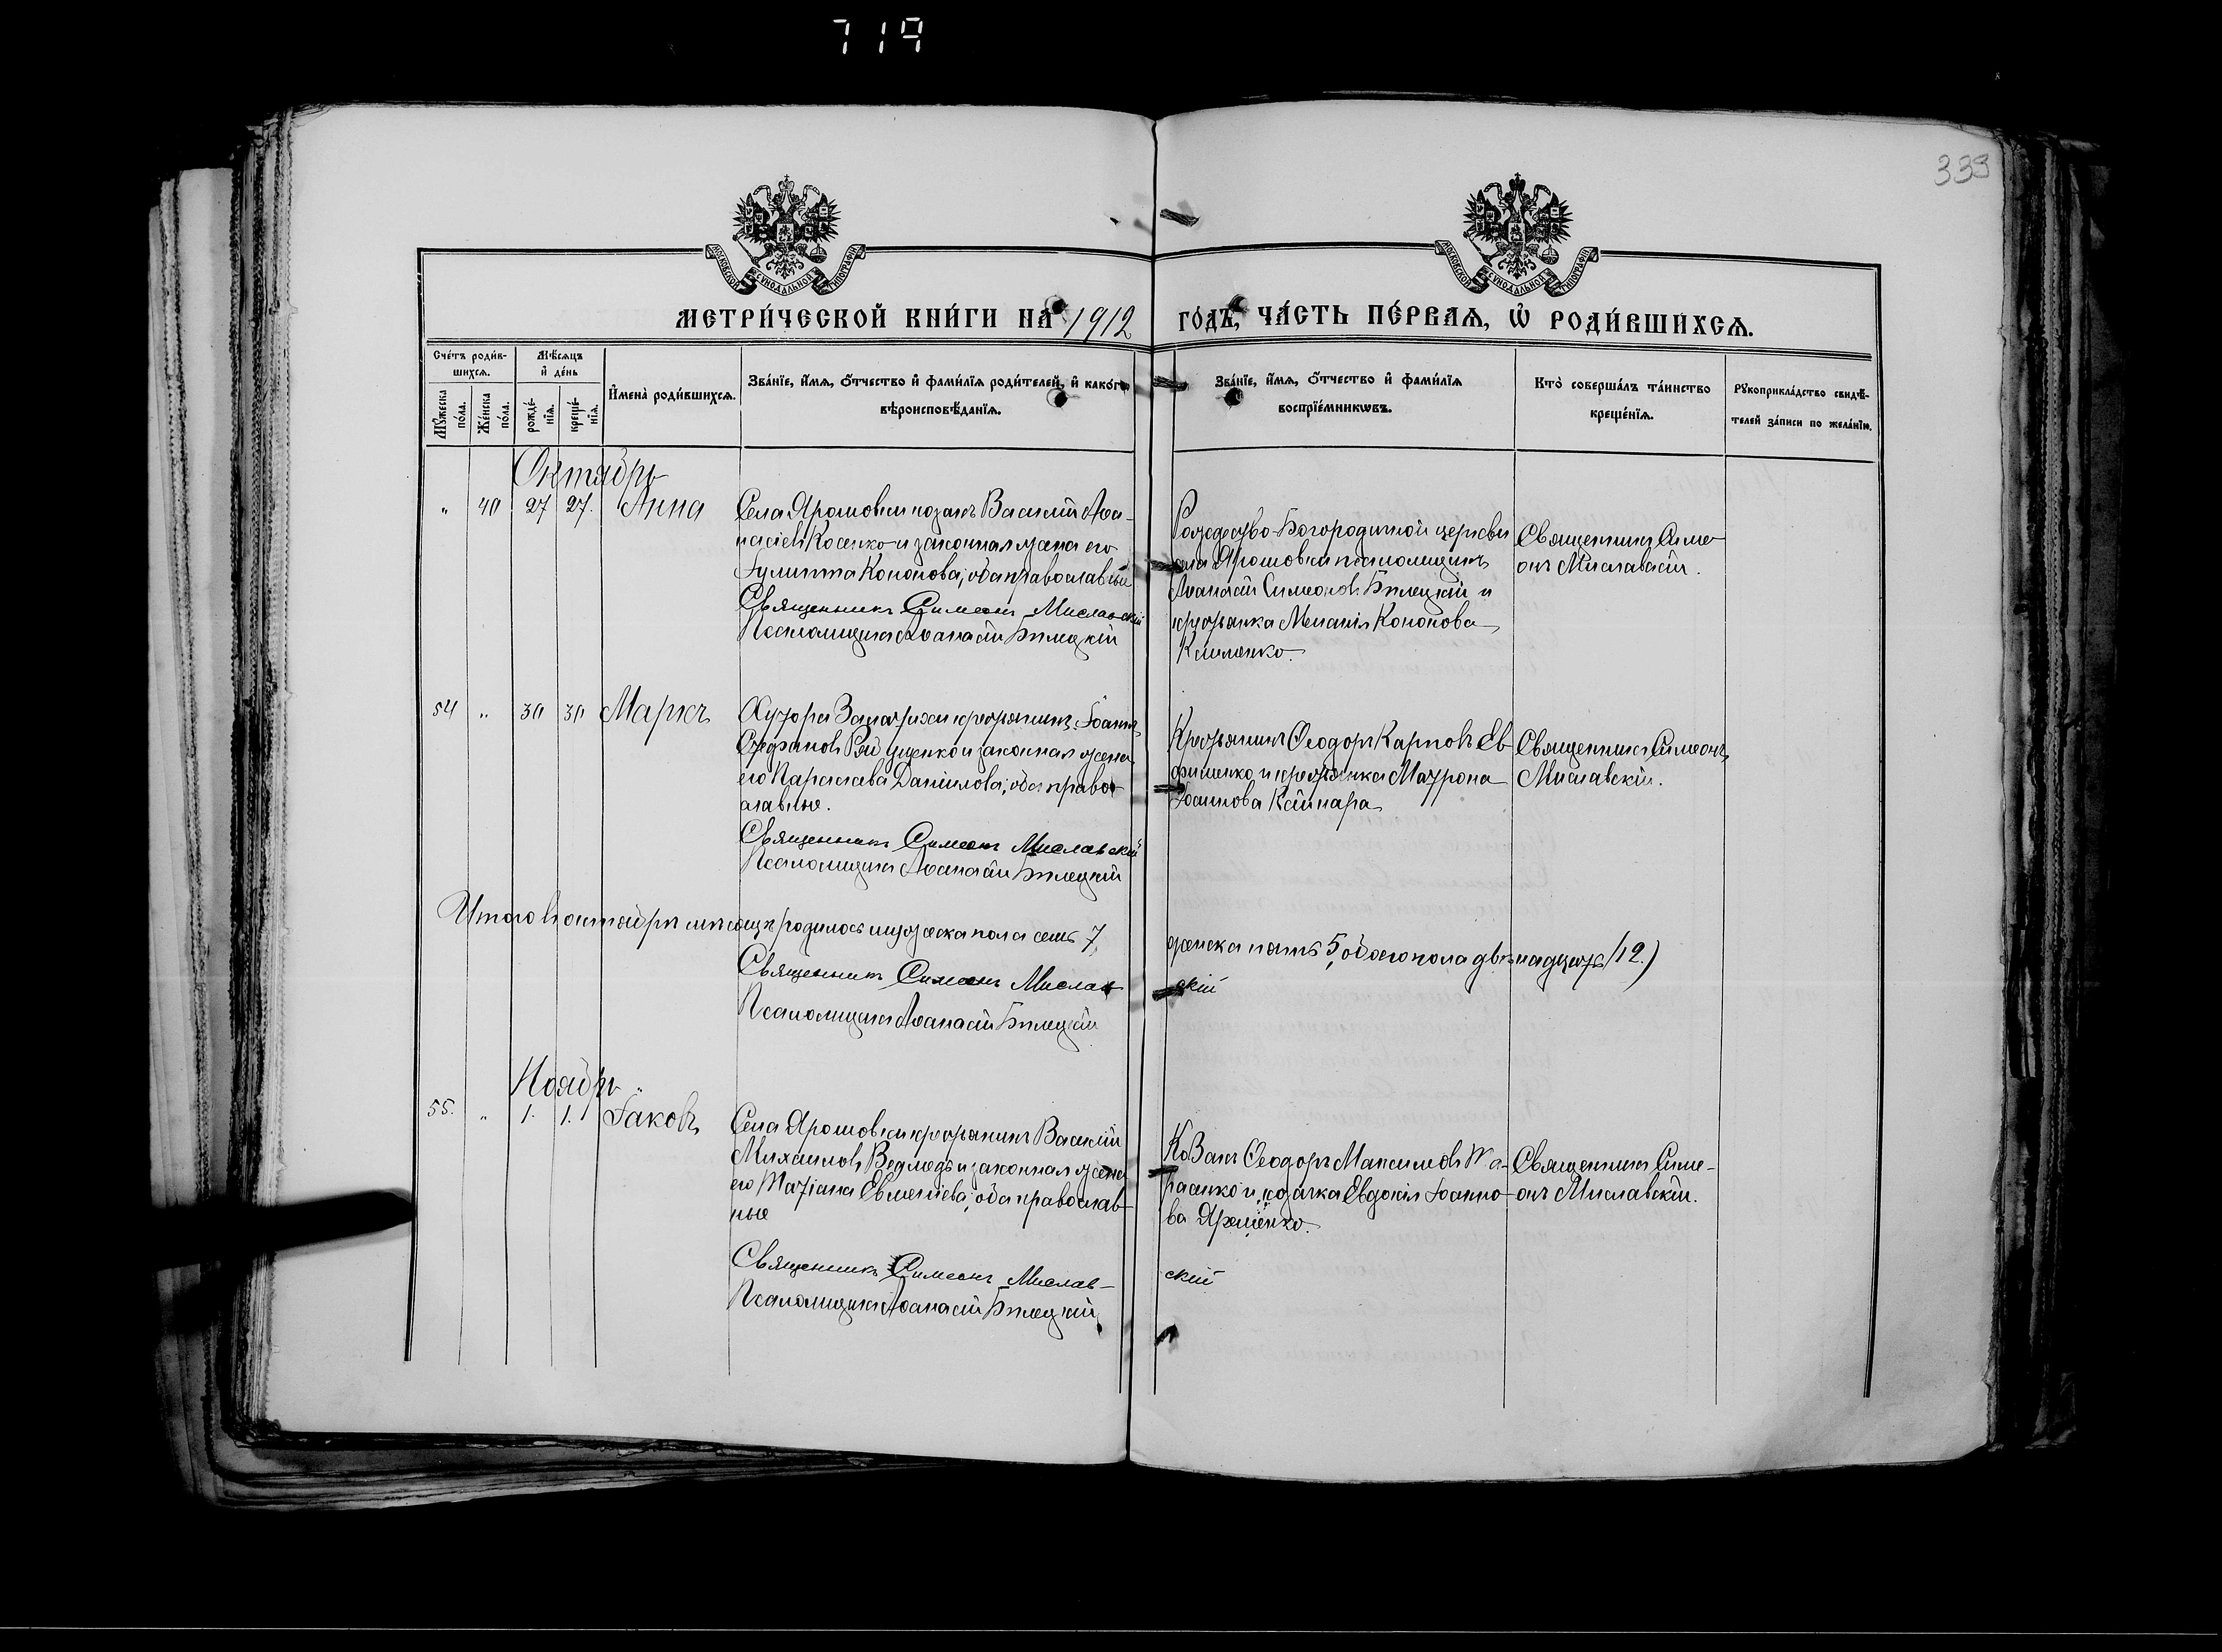 719
339
МОСКОВСКОЙ СУНОДАЛЬНОЙ ТИПОГРАФІИ
МОСКОВСКОЙ СУНОДАЛЬНОЙ ТИПОГРАФІИ
МЕТРИ́ЧЕСКОЙ КНИ́ГИ НА 1912 ГО́ДЪ, ЧА́СТЬ ПЕ́РВАЯ, Ѡ҆ РОДИ́ВШИХСЯ.
Сче́тъ роди́в-
шихся.
Мꙋ́жеска по́ла.
Же́нска по́ла.
Мѣ́сяцъ
и҆ де́нь
рожде́-
нїя.
креще́-
нїя.
И҆мена̀ роди́вшихся.
Зва́нїе, и҆́мя, ѻ҆́тчество и҆ фами́лїя роди́телей, и҆ како́гѡ
вѣроисповѣ́данїя.
Зва́нїе, и҆́мя, ѻ҆́тчество и҆ фами́лїя
воспрїе́мникѡвъ.
Кто̀ соверша́лъ та́инство
креще́нїя.
Рꙋкоприкла́дство свидѣ́-
телей за́писи по жела́нїю.
Октябрь
" 40 27 27. Анна
Села Ярошовки козакъ Василій Аѳа-
насіевъ Косенко и законная жена его
Іулитта Кононова; оба православные
Священникъ Симеонъ Миславскій
Псаломщикъ Аѳанасій Билецкій
Рождество-Богородичной церкви
села Ярошовки псаломщикъ
Аѳанасій Симеоновъ Билецкій и
крестьянка Меланія Кононова
Клименко.
Священникъ Симе-
онъ Миславскій.
54 " 30 30 Маркъ
Хутора крестьянинъ Іоаннъ
Стефановъ и законная жена
его Параскева Даніилова; оба право-
славные.
Священникъ Симеонъ Миславскій
Псаломщикъ Аѳанасій Билецкій
Крестьянинъ Ѳеодоръ Карповъ Ев-
фименко и крестьянка Матрона
Іоаннова
Священникъ Симеонъ
Миславскій.
Итого въ октябрѣ мѣсяцѣ родилось мужеска пола семь 7,
женска пять 5, обоего пола двѣнадцать (12.)
Священникъ Симеонъ Мислав-
скій
Псаломщикъ Аѳанасій Билецкій
Ноябрь
55. " 1. 1. Іаковъ
Села Ярошовки крестьянинъ Василій
Михаиловъ Ведмедь и законная жена
его Татіана Евменіева; оба православ-
ные
Священникъ Симеонъ Мислав-
скій
Псаломщикъ Аѳанасій Билецкій
Козакъ Ѳеодоръ Максимовъ Та-
расенко и козачка Евдокія Іоанно-
ва Яременко.
Священникъ Симе-
онъ Миславскій.